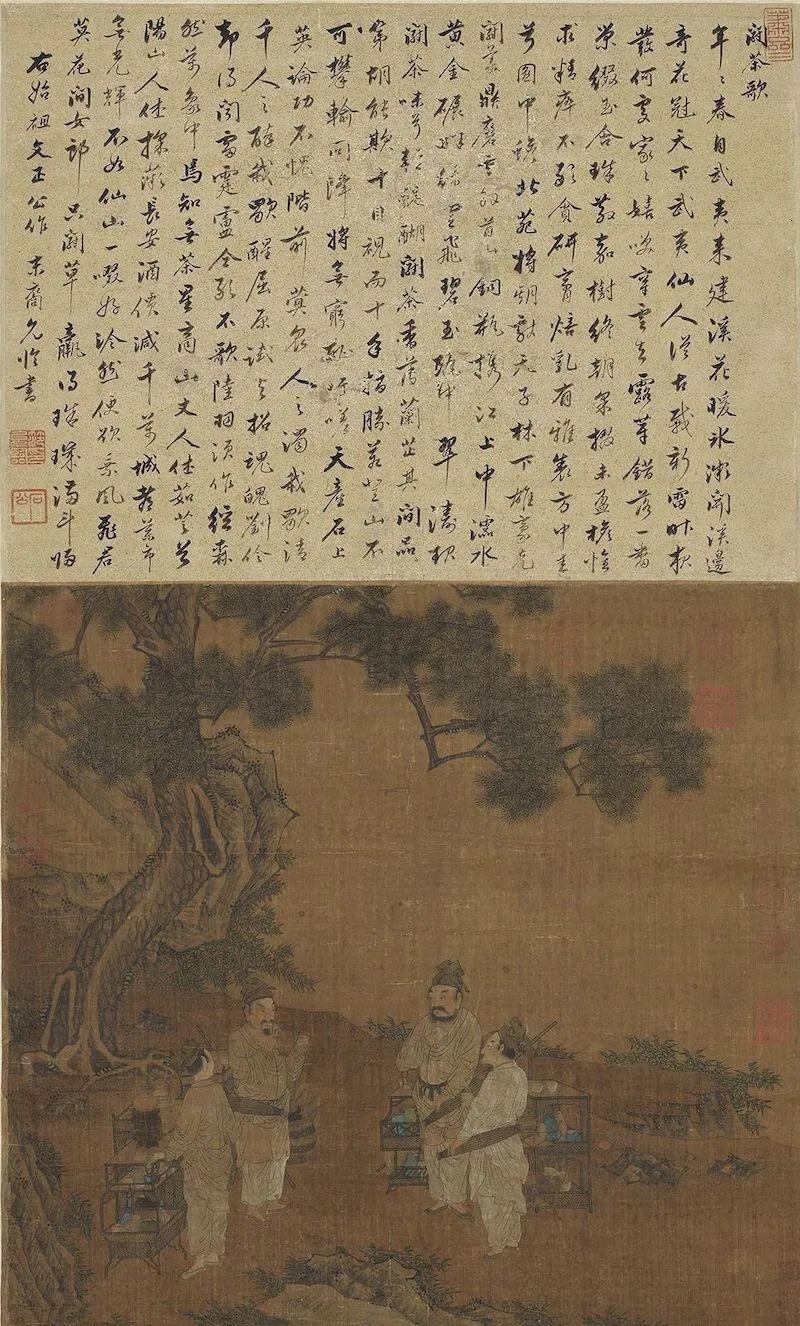 闘茶歌
年〻春自武夷来建溪花暖冰微開溪邊
奇花冠天下武夷仙人從古栽新雷昨夜
發何處家〻嬉咲穿雲去露芽錯落一番
榮綴玉含珠散嘉樹終朝采掇未盈襜惟
求精粹不敢貪研膏焙乳有雅製方中圭
兮圓中蟾北苑將期獻天子林下雄豪先
闘美鼎磨雲外首山銅瓶攜江上中濡水
黃金碾畔綠塵飛碧玉甌中翠濤起
闘茶味兮輕醍醐闘茶香薄蘭芷其間品
第胡能欺十目視而十手指勝若登山不
可攀輸同降將無窮恥吁嗟天產石上
英論功不愧階前蓂眾人之濁我歌清
千人之醉我歌醒屈原試與招魂魄劉伶
却得聞雷霆盧仝敢不歌陸羽須作經森
然萬象中焉知無茶星商山丈人休茹芝首
陽山人休採薇長安酒價減千萬城都藥市
無光輝不如仙山一啜好泠然便欲乘風飛君
莫花間女郎只闘草贏得珠璣滿斗歸
右始祖文正公作末裔允臨書